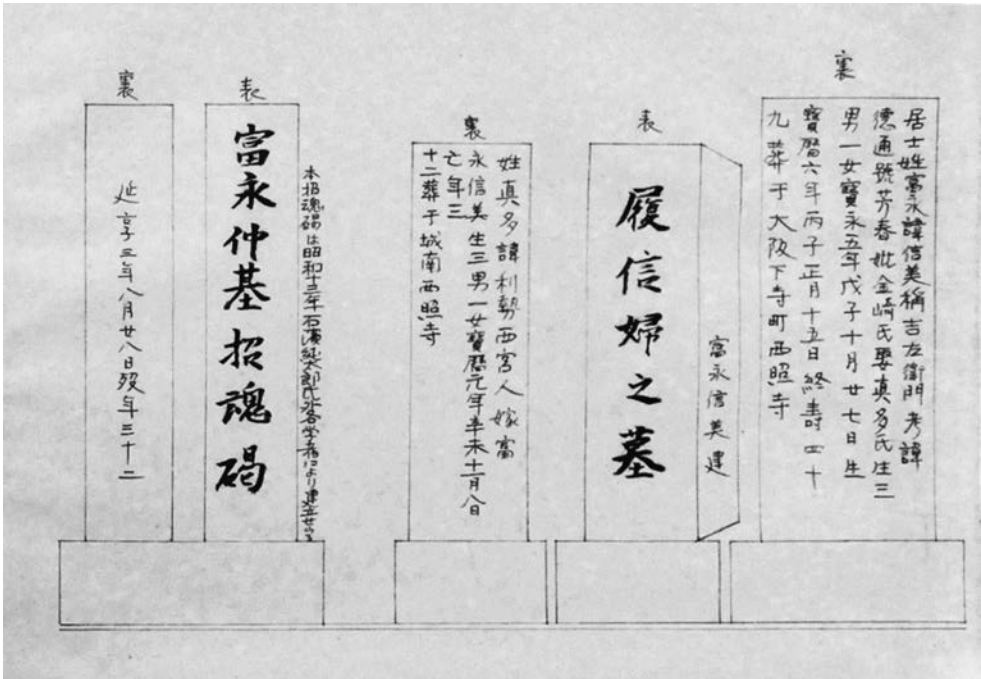 裏
居士姓富永諱信美稱吉左衛門考諱
德通號芳春妣金崎氏娶真多氏生三
男一女寶永五年戊子十月廿七日生
寶曆六年丙子正月十五日終壽四十
九葬于大阪下寺町西照寺
表
富永信美建
履信婦之墓
裏
姓真多諱利勢西宮人嫁富
永信美生三男一女寶曆元年辛未十一月八日
亡年三
十二葬于城南西照寺
表
本招魂碣は昭和十二年石濱純太郎氏外各学者により建立せらる
富永仲基招魂碣
裏
延享三年八月廿八日歿年三十二